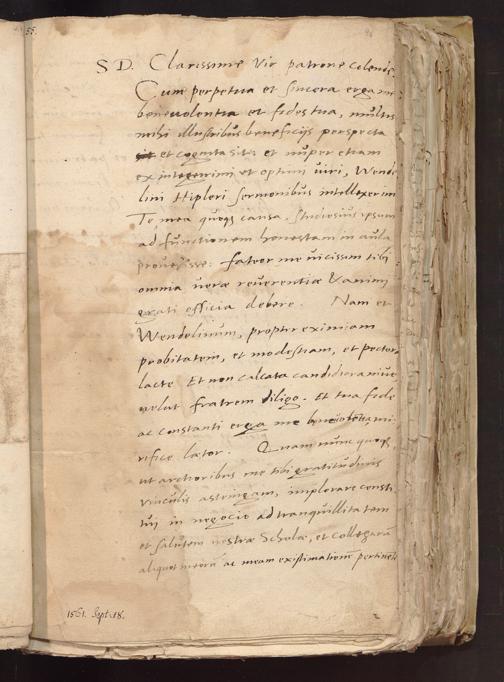 S D. Clarissime Vir patrone colende.
Cum perpetua et sincera erga me
benevolentia et fides tua, multis
mihi illustribus beneficijs perspecta
et cognita sit, et nuper etiam
ex integerrimi et optimi viri, Wende
lini Hipleri sermonibus intellexerim
Te mea quoque causa studiosius ipsum
ad functionem honestam in aula
provexisse: fateor me vicissim tibi
omnia verae reverentiae & animi
grati officia debere. Nam et
Wendelinum, propter eximiam
probitatem, et modestiam, et pectora
lacte Et non calcata candidiora nive
velut fratrem diligo. Et tua fide
ac constanti erga me benevolentia mi
rifice laetor. Quam nunc quoque,
ut arctioribus me tibi gratitudinis
vinculis astringam, implorare consti
tui in negocio ad tranquillitatem
et salutem nostrae Scholae, et collegarum
aliquot meorum ac meam existimationem pertinente
1561. Sept. 18.